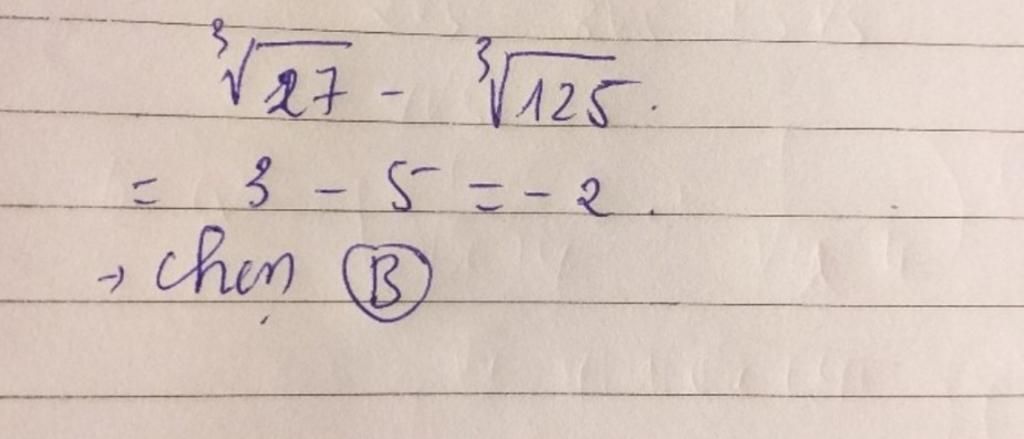 ∛27 - ∛125.
= 3 - 5 = -2.
→ chọn Ⓑ